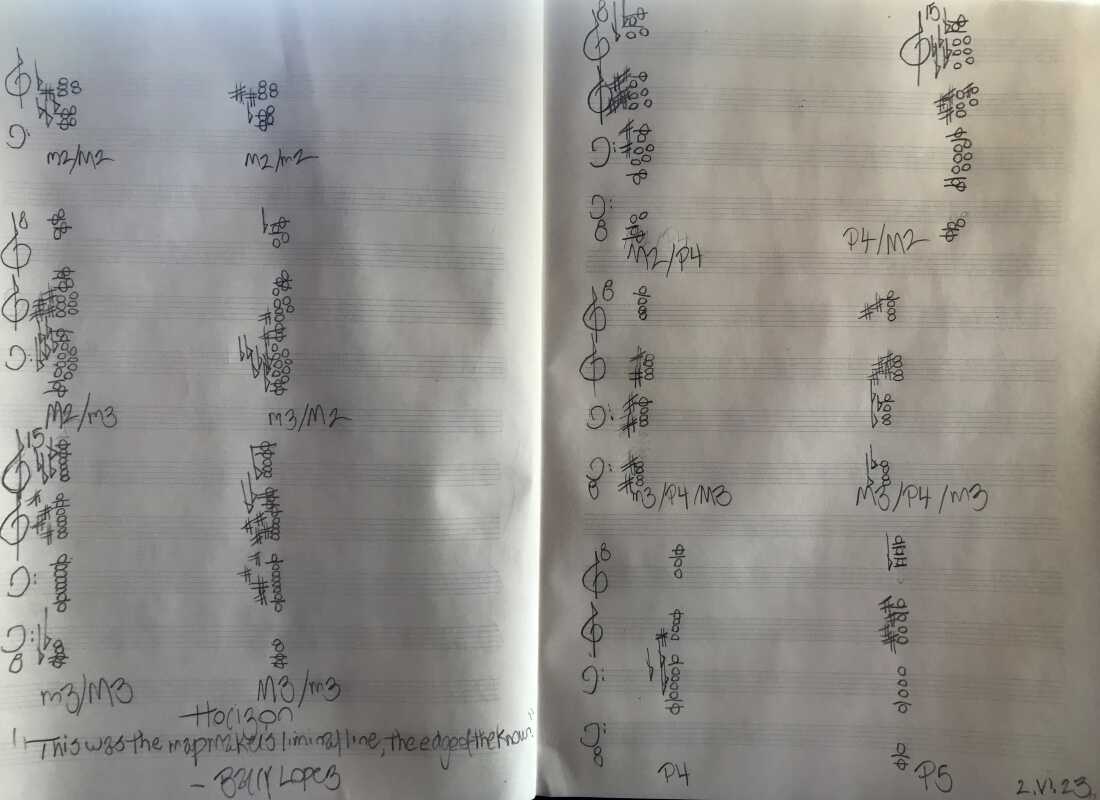 m2/M2 m2/m2
M2/m3 m3/M2
m3/M3 M3/m3
Horizon
"This was the mapmaker's liminal line, the edge of the known."
- Barry Lopez
8 15
8
M2/P4 P4/M2
8
8
m3/P4/M3 M3/P4/m3
8
8
P4 P5
2.VI.23.